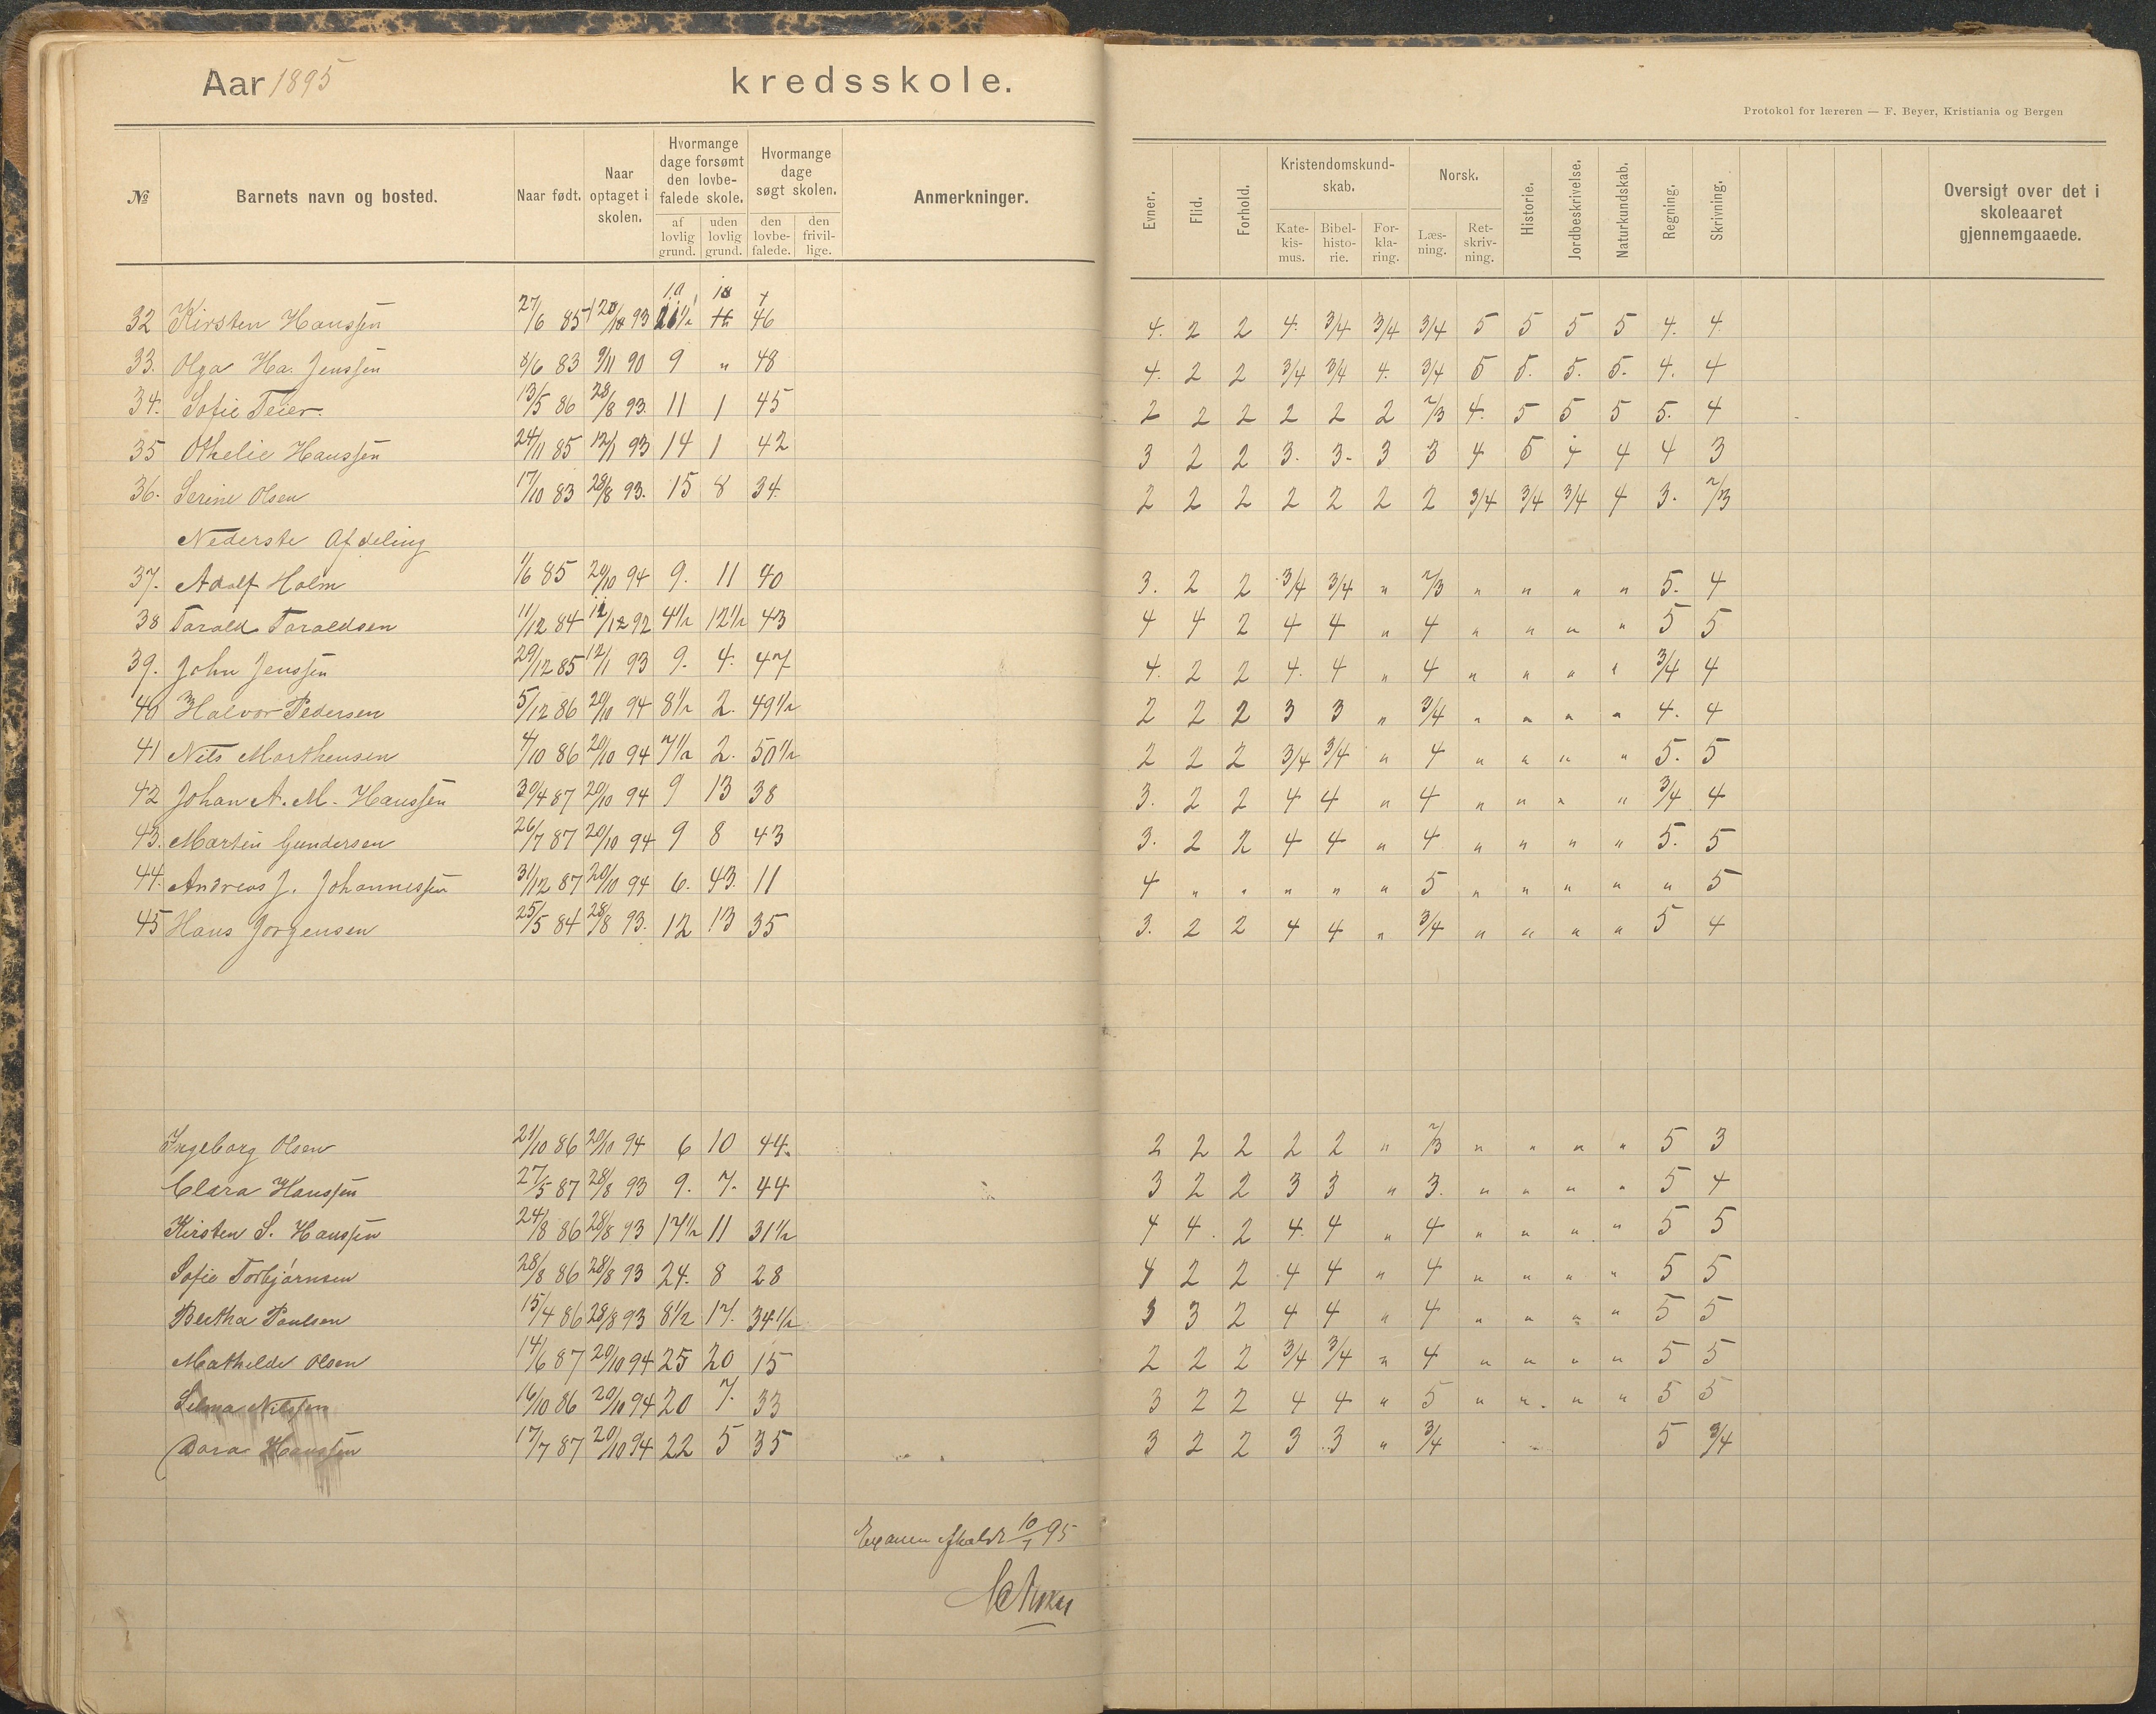 Aar 1895 kredsskole.
Protokol for læreren — F. Beyer, Kristiania og Bergen
№ Barnets navn og bosted. Naar født. Naar optaget i skolen. Hvormange dage forsømt den lovbefalede skole. af lovlig grund. uden lovlig grund. Hvormange dage søgt skolen. den lovbefalede. den frivillige. Anmerkninger. Evner. Flid. Forhold. Kristendomskundskab. Katekismus. Bibelhistorie. Forklaring. Norsk. Læsning. Retskrivning. Historie. Jordbeskrivelse. Naturkundskab. Regning. Skrivning. Oversigt over det i skoleaaret gjennemgaaede.
32 Kirsten Hanssen 27/6 85 93 46 4. 2 2 4. 3/4 3/4 3/4 5 5 5 5 4. 4
33. Olga Ha. Jenssen 8/6 83 9/11 90 9 " 48 4. 2 2 3/4 3/4 4. 3/4 5 5. 5. 5. 4. 4
34. Sofie Teier. 13/5 86 28/8 93. 11 1 45 2 2 2 2 2 2 2/3 4. 5 5 5 5. 4
35 Othelie Hanssen 24/11 85 12/1 93 14 1 42 3 2 2 3. 3. 3 3 4 5 4 4 4 3
36. Serine Olsen 17/10 83 28/8 93. 15 8 34. 2 2 2 2 2 2 2 3/4 3/4 3/4 4 3. 2/3
Nederste Afdeling
37. Adolf Holm 1/6 85 20/10 94 9. 11 40 3. 2 2 3/4 3/4 " 2/3 " " " " 5. 4
38 Tarald Taraldsen 11/12 84 12/12 92 4 1/2 12 1/2 43 4 4 2 4 4 " 4 " " " " 5 5
39. John Jenssen 29/12 85 12/1 93 9. 4. 47 4. 2 2 4. 4 " 4 " " " " 3/4 4
40 Halvor Pedersen 5/12 86 20/10 94 8 1/2 2. 49 1/2 2 2 2 3 3 " 3/4 " " " " 4. 4
41 Nils Marthensen 4/10 86 20/10 94 7 1/2 2. 50 1/2 2 2 2 3/4 3/4 " 4 " " " " 5. 5
42 Johan A. M. Hanssen 30/4 87 20/10 94 9 13 38 3. 2 2 4 4 " 4 " " " " 3/4 4
43. Martin Gundersen 26/7 87 20/10 94 9 8 43 3. 2 2 4 4 " 4 " " " " 5. 5
44. Andreas J. Johannessen 31/12 87 20/10 94 6. 43. 11 4 " " " " " 5 " " " " " 5
45 Hans Jorgensen 25/5 84 28/8 93. 12 13 35 3. 2 2 4 4 " 3/4 " " " " 5 4
Ingeborg Olsen 21/10 86 20/10 94 6 10 44. 2 2 2 2 2 " 2/3 " " " " 5 3
Clara Hanssen 27/5 87 28/8 93 9. 7. 44 3 2 2 3 3 " 3. " " " " 5 4
Kirsten S. Hanssen 24/8 86 28/8 93 17 1/2 11 31 1/2 4 4 2 4. 4 " 4 " " " " 5 5
Sofie Torbjörnsen 28/8 86 28/8 93 24. 8 28 4 2 2 4 4 " 4 " " " " 5 5
Bertha Paulsen 15/4 86 28/8 93 8 1/2 17. 34 1/2 3 3 2 4 4 " 4 " " " " 5 5
Mathilde Olsen 14/6 87 20/10 94 25 20 15 2 2 2 3/4 3/4 " 4 " " " " 5 5
Selma Nilssen 16/10 86 20/10 94 20 7. 33 3 2 2 4 4 " 5 " " " " 5 5
Dora Hanssen 17/7 87 20/10 94 22 5 35 3 2 2 3 3 " 3/4 5 3/4
Examen afholdt 10/7 95